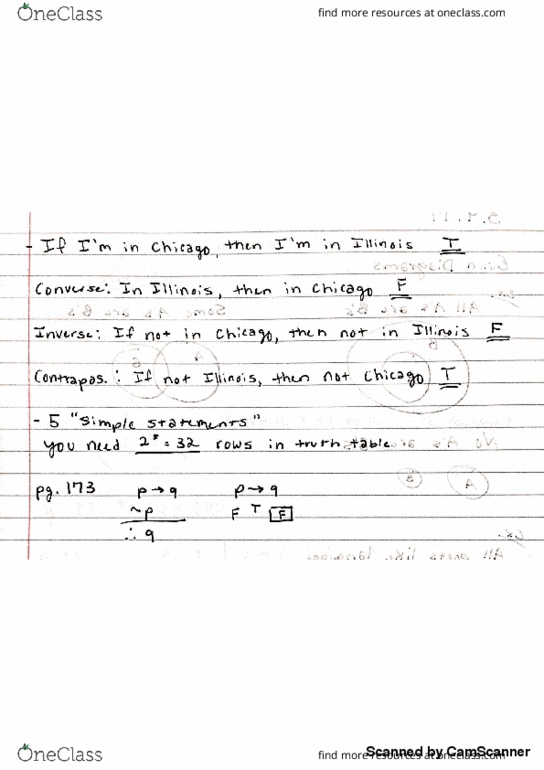 OneClass
find more resources at oneclass.com
- If I'm in Chicago, then I'm in Illinois T
Converse: In Illinois, then in Chicago F
Inverse: If not in Chicago, then not in Illinois F
Contrapos.: If not Illinois, then not Chicago T
- 5 "simple statements"
you need 2⁵ = 32 rows in truth table
pg. 173 p → q p → q
~p F T F
∴ q
OneClass
find more resources at oneclass.com
Scanned by CamScanner